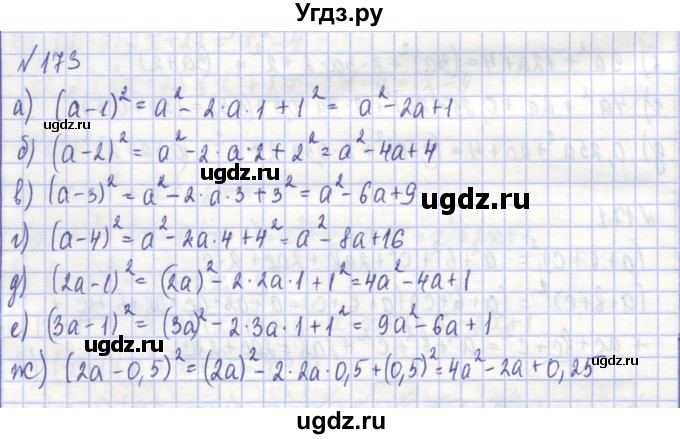 Угдз.ру
№ 173
а) (a-1)² = a² - 2·a·1 + 1² = a² - 2a + 1
gdz.ru
gdz.ru
б) (a-2)² = a² - 2·a·2 + 2² = a² - 4a + 4
в) (a-3)² = a² - 2·a·3 + 3² = a² - 6a + 9
ugdz.ru
ugdz.ru
г) (a-4)² = a² - 2a·4 + 4² = a² - 8a + 16
д) (2a-1)² = (2a)² - 2·2a·1 + 1² = 4a² - 4a + 1
е) (3a-1)² = (3a)² - 2·3a·1 + 1² = 9a² - 6a + 1
ugdz.ru
ugdz.ru
ж) (2a-0,5)² = (2a)² - 2·2a·0,5 + (0,5)² = 4a² - 2a + 0,25
ugdz.ru